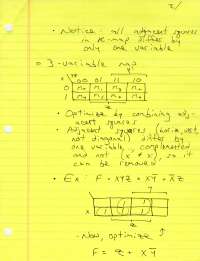 2/
• Notice: all adjacent squares
in K-map differ by
only one variable
3-variable map
x yz 00 01 11 10
0 m0 m1 m3 m2
1 m4 m5 m7 m6
z
• Optimize by combining adj-
acent squares
• Adjacent squares (horiz, vert,
not diagonal) differ by
one variable, complemented
and not (x + x̄), so it
can be removed
• Ex: F = xyz + x̄z + x̄z
y
x 1 1 1
z
- Now, optimize
F = z + xȳ